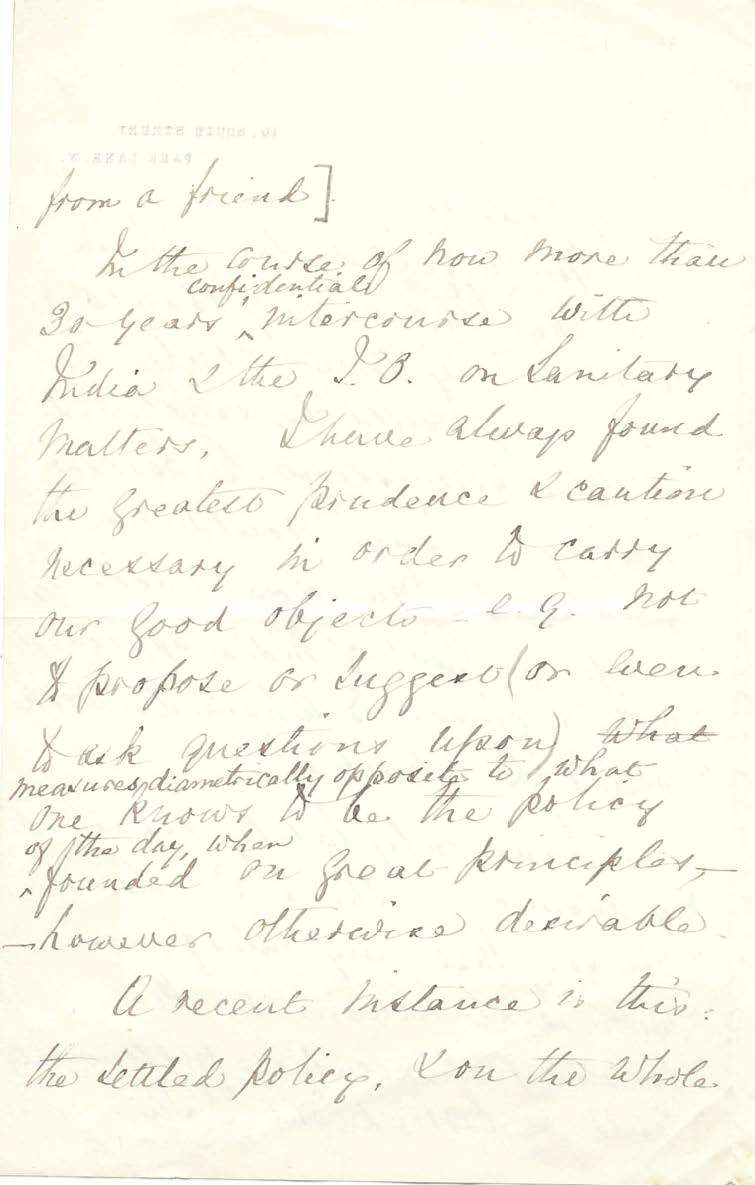 10, SOUTH STREET
PARK LANE. W.
from a friend]
In the course of now more than
confidential
30 years' ^ intercourse with
India & the I.O. on Sanitary
matters, I have always found
the greatest prudence & caution
necessary in order to carry
our good objects - e.g. not
to propose or suggest (or even
to ask questions upon) what
measures, diametrically opposite to what
one knows to be the policy
of the day, when
^ founded on great principles, -
- however otherwise desirable.
A recent instance is this:
the settled policy, & on the whole